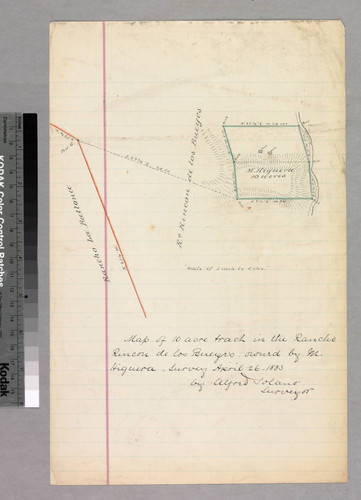 Ro Rincon de los Bueyes
M. Higuera
10 acres
Rancho La Ballona
Scale of 2 inch to 1 chn.
Map of 10 acre tract in the Rancho
Rincon de los Bueyes, owned by M.
Higuera - Survey April 26 - 1883
by Alfred Solano
Surveyor
KODAK Color Control Patches
Kodak